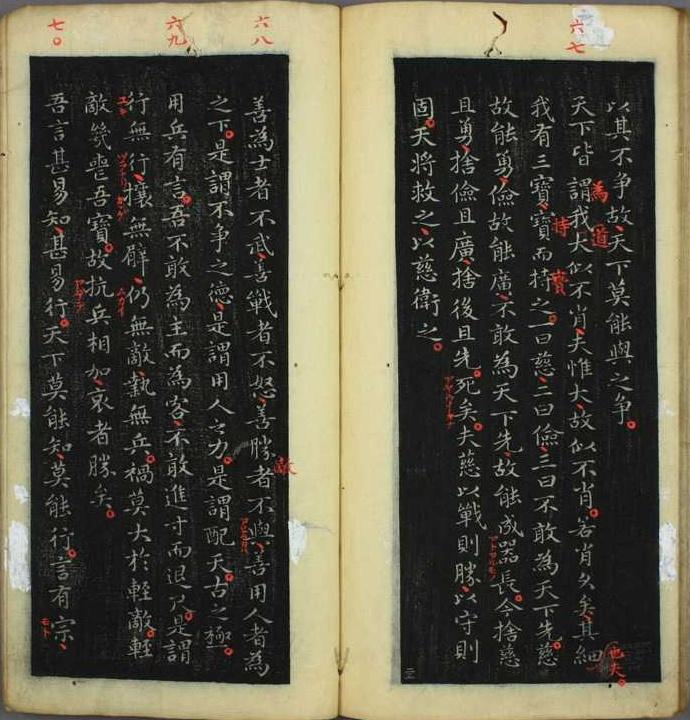 六七
以其不争故天下莫能與之争
為道
天下皆謂我大似不肖夫惟大故似不肖若肖久矣其細
也夫
持寶
我有三寶寶而持之一曰慈二曰儉三曰不敢為天下先慈
故能勇儉故能廣不敢為天下先故能成器長今捨慈
且勇捨儉且廣捨後且先死矣夫慈以戰則勝以守則
固天將救之以慈衛之
六八
敵
善為士者不武善戰者不怒善勝者不與善用人者為
之下是謂不争之德是謂用人之力是謂配天古之極
六九
用兵有言吾不敢為主而為客不敢進寸而退尺是謂
行無行攘無臂仍無敵執無兵禍莫大於輕敵輕
敵幾喪吾寶故抗兵相加哀者勝矣
七〇
吾言甚易知甚易行天下莫能知莫能行言有宗
モト